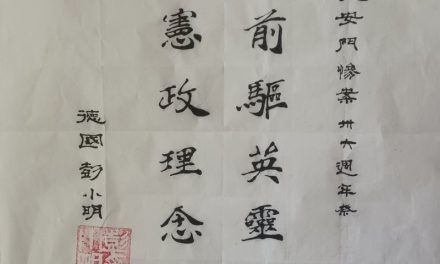 安門慘案卅六週年祭
前驅英靈
憲政理念
德國彭小明